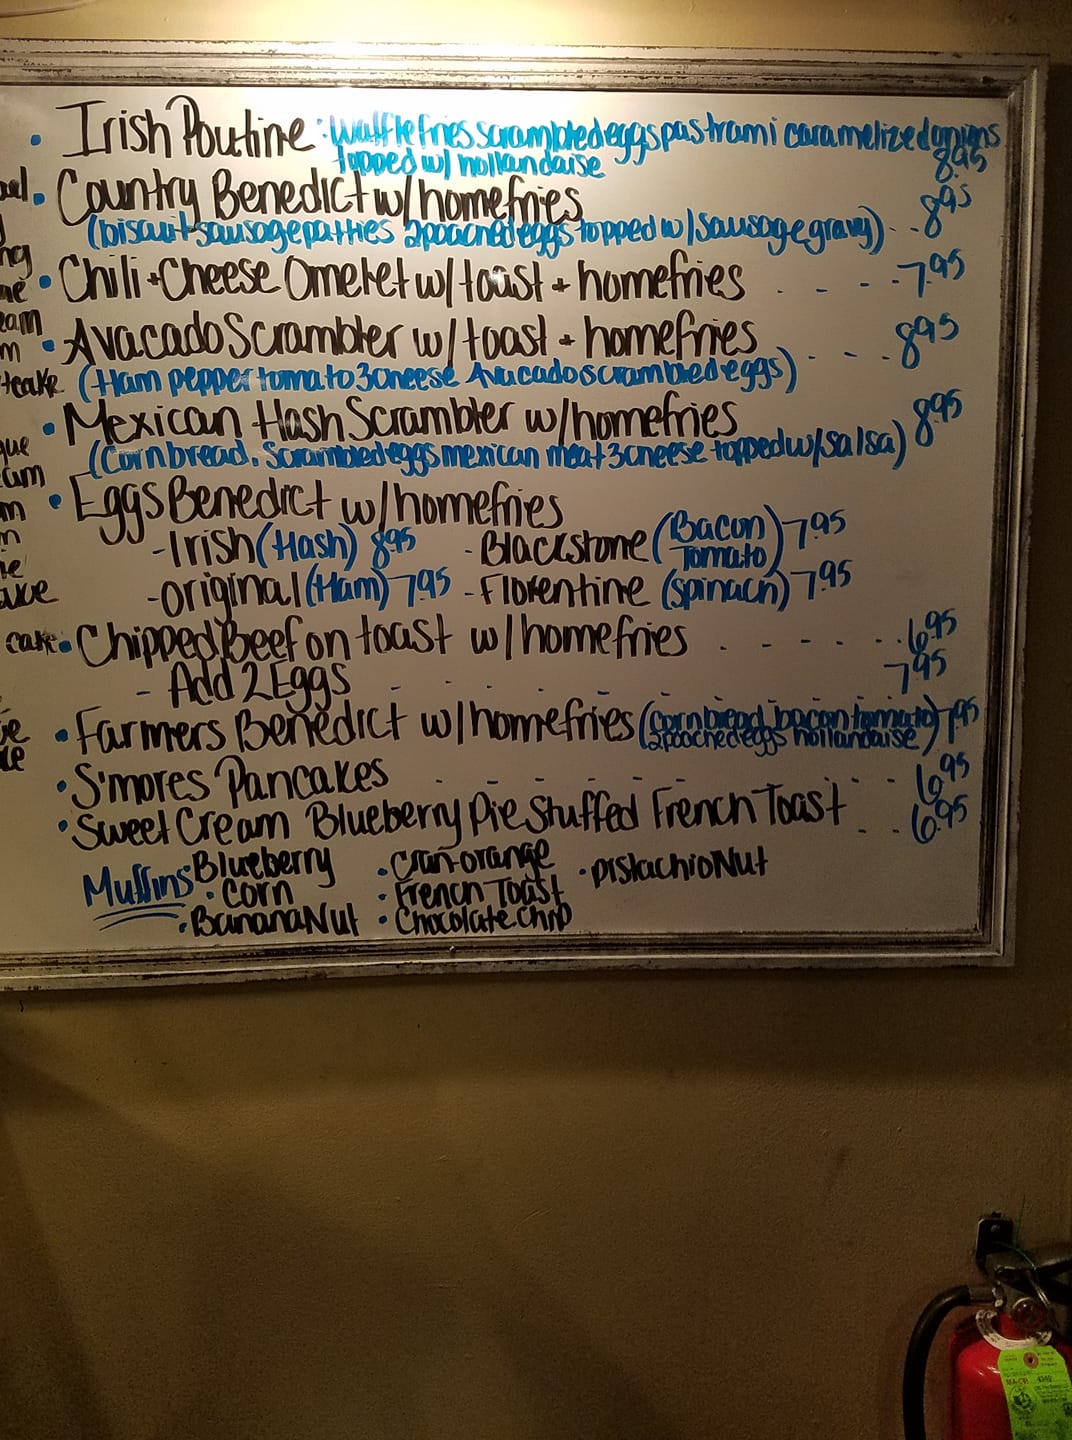 • Irish Poutine: waffle fries scrambled eggs pastrami caramelized onions
topped w/ hollandaise 8.95
• Country Benedict w/ homefries
(biscuit sausage patties 2 poached eggs topped w/ sausage gravy) - - 8.95
• Chili + Cheese Omelet w/ toast + homefries - - - - 7.95
• Avacado Scrambler w/ toast + homefries - - - 8.95
(Ham pepper tomato 3 cheese Avacado scrambled eggs)
• Mexican Hash Scrambler w/ homefries 8.95
(Corn bread. Scrambled eggs mexican meat 3 cheese topped w/ salsa)
• Eggs Benedict w/ homefries
- Irish (Hash) 8.95 - Blackstone (Bacon Tomato) 7.95
- original (Ham) 7.95 - Florentine (spinach) 7.95
• Chipped Beef on toast w/ homefries - - - - - 6.95
- Add 2 Eggs - - - - - 7.95
• Farmers Benedict w/ homefries (corn bread, bacon tomato
2 poached eggs hollandaise) 7.95
• S'mores Pancakes - - - - - - - - - 6.95
• Sweet Cream Blueberry Pie Stuffed French Toast - - 6.95
Muffins • Blueberry • Cran-orange • pistachio Nut
• Corn • French Toast
• Banana Nut • Chocolate Chip
cake